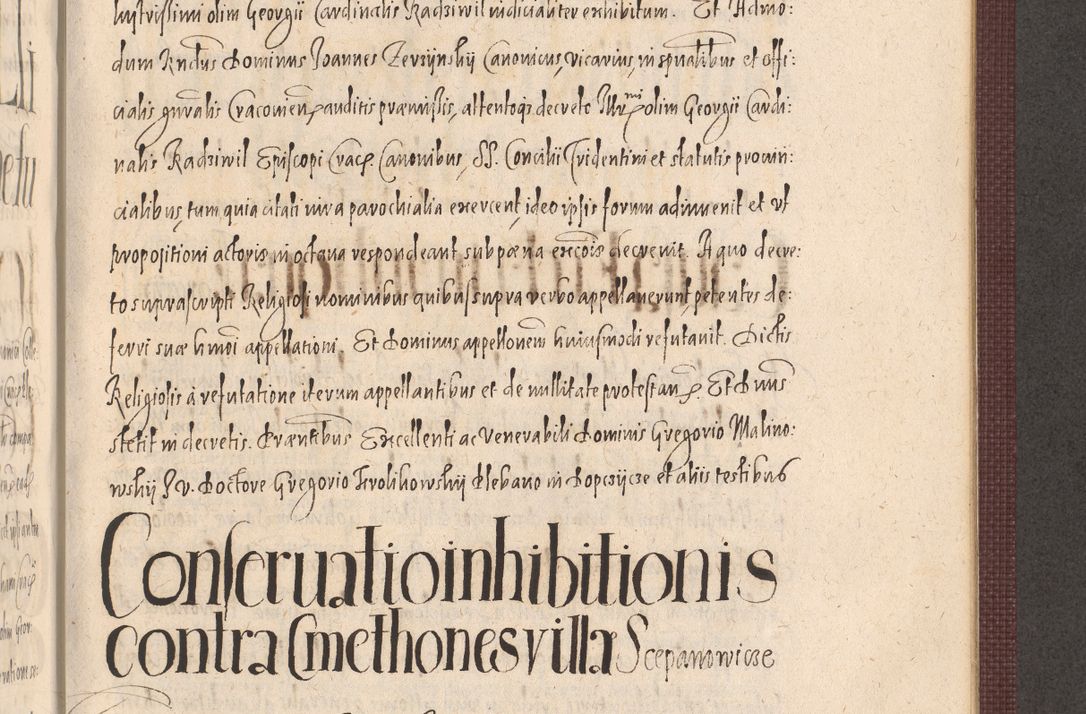 lustrissimi olim Georgii Cardinalis Radziwil iudicialiter exhibitum. Et Admo:
dum Rndus Dominus Joannes Zerzijnskij Canonicus, vicarius, in spualibus et offi:
cialis gnralis Cracovien, auditis præmissis, attentoqz decreto Illrmi olim Georgii Cardi:
nalis Radziwil Episcopi Crac. Canonibus, SS. Concilii Tridentini et statutis provin:
cialibus, tum quia citati iura parochialia exercent, ideo ipsis forum adinvenit et vt
propositioni actoris in octava respondeant sub pæna excois decrevit. A quo decre:
to suprascripti Religiosi nominibus quibus supra verbo appellaverunt, petentes de:
ferri suæ hmoi appellationi, Et Dominus appellonem huiusmodi refutavit. Dictis
Religiosis à refutatione iterum appellantibus et de nullitate protestan. Et Dnus
stetit in decretis. Præntibus Excellenti ac Venerabili Dominis Gregorio Malino:
wskij J. v. Doctore Gregorio Frolikowskij Plebano in Dopczijcze et aliis testibus
Conservatio inhibitionis
contra Cmethones villæ Scepanowicze